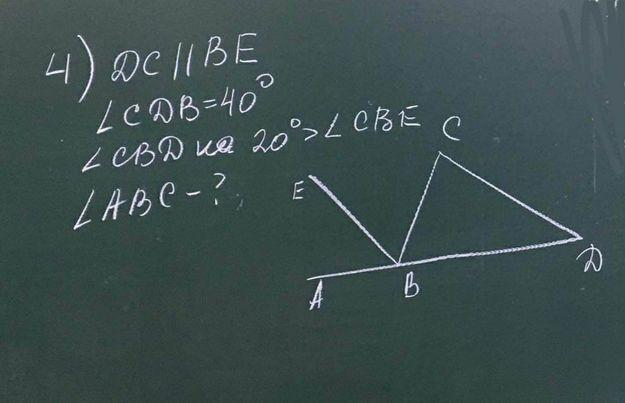 4) DC || BE
∠CDB=40°
∠CBD на 20° > ∠CBE
∠ABC - ?
C
E
D
A
B